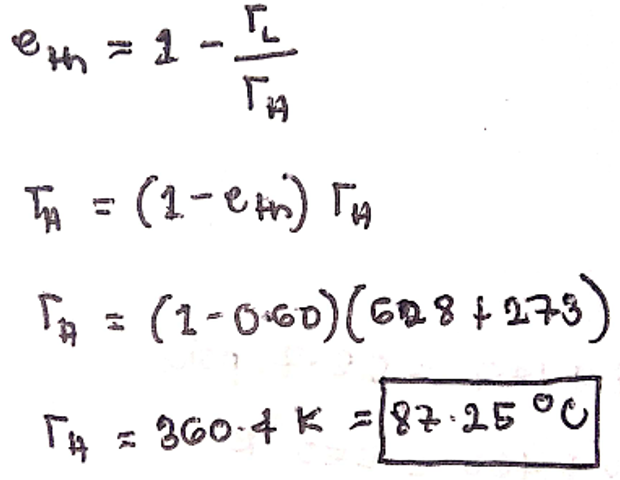 e_th = 1 - T_L / T_H
T_H = (1 - e_th) T_H
T_H = (1 - 0.60)(628 + 273)
T_H = 360.4 K = 87.25 °C